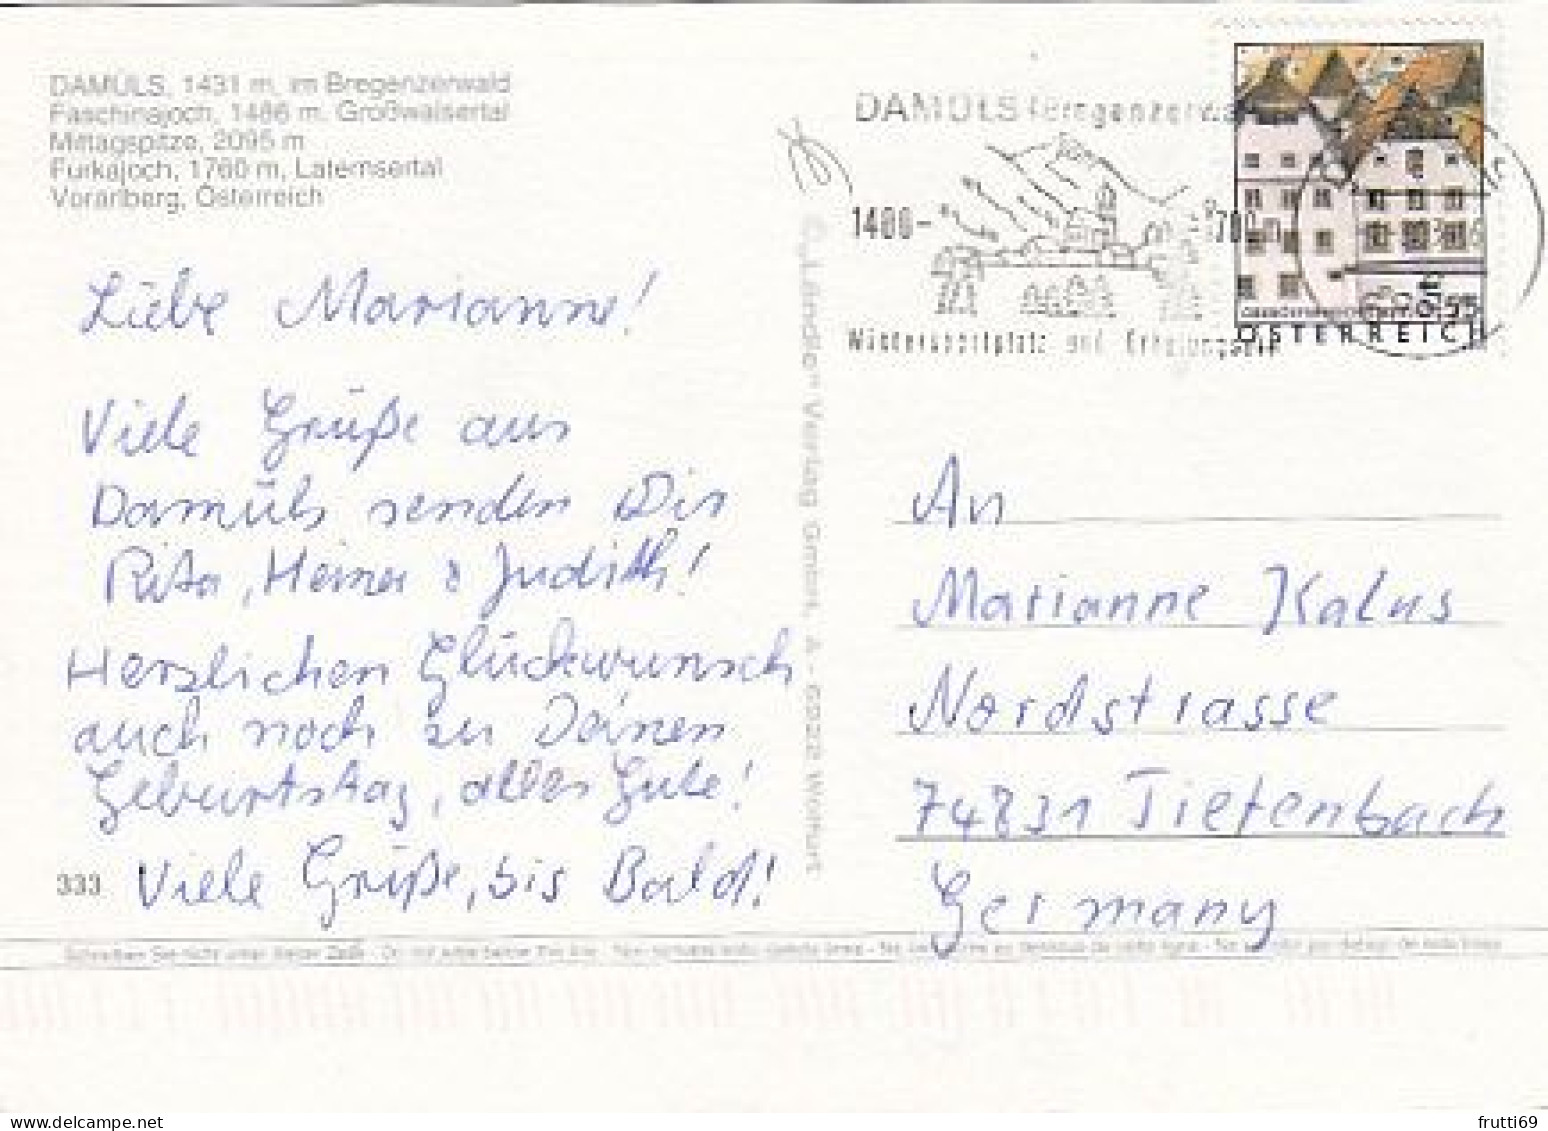 DAMÜLS, 1431 m, im Bregenzerwald
Faschinajoch, 1486 m, Großwalsertal
Mittagspitze, 2095 m
Furkajoch, 1760 m, Laternsertal
Vorarlberg, Österreich
Liebe Marianne!
Viele Grüße aus
Damüls senden Dir
Rita, Heiner & Judith!
Herzlichen Glückwunsch
auch noch zu Deinen
Geburtstag, alles Gute!
Viele Grüße, bis Bald!
333
"Ländle" Verlag GmbH, A - 6922 Wolfurt
DAMÜLS (Bregenzerwa
1400-
1700 m
Wintersportplatz und Erholungs
€ 0,55
ÖSTERREICH
An
Marianne Kalus
Nordstrasse
74831 Tiefenbach
Germany
Schreiben Sie nicht unter dieser Zeile - Do not write below this line -
frutti69